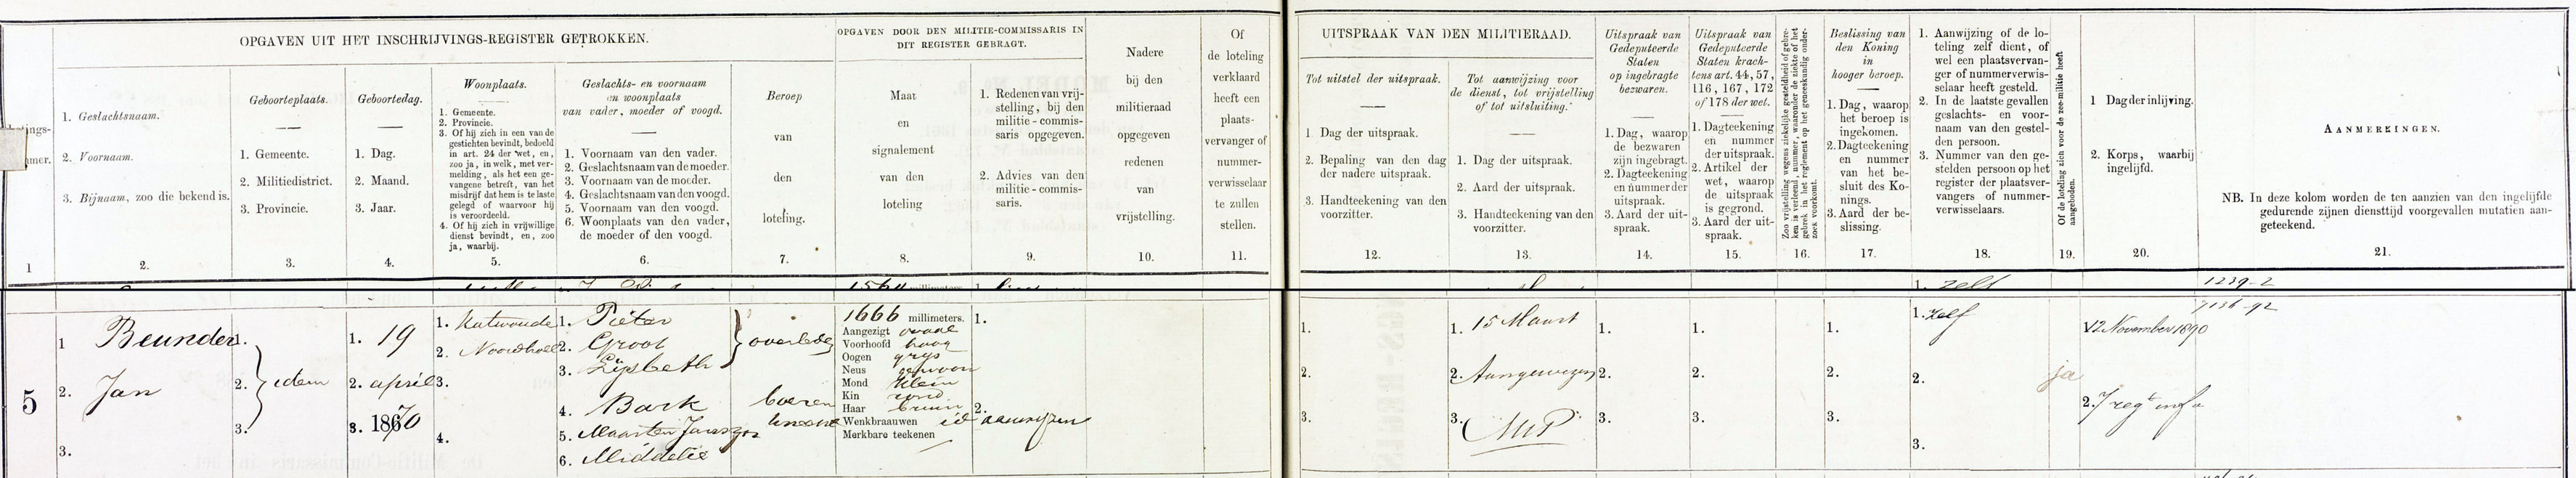 OPGAVEN UIT HET INSCHRIJVINGS-REGISTER GETROKKEN.
1
2.
1. Geslachtsnaam.
2. Voornaam.
3. Bijnaam, zoo die bekend is.
Geboorteplaats.
1. Gemeente.
2. Militiedistrict.
3. Provincie.
3.
Geboortedag.
1. Dag.
2. Maand.
3. Jaar.
4.
Woonplaats.
1. Gemeente.
2. Provincie.
3. Of hij zich in een van de
gestichten bevindt, bedoeld
in art. 24 der wet, en,
zoo ja, in welk, met ver-
melding, als het een ge-
vangene betreft, van het
misdrijf dat hem is te laste
gelegd of waarvoor hij
is veroordeeld.
4. Of hij zich in vrijwillige
dienst bevindt, en, zoo
ja, waarbij.
5.
Geslachts- en voornaam
en woonplaats
van vader, moeder of voogd.
1. Voornaam van den vader.
2. Geslachtsnaam van de moeder.
3. Voornaam van de moeder.
4. Geslachtsnaam van den voogd.
5. Voornaam van den voogd.
6. Woonplaats van den vader,
de moeder of den voogd.
6.
Beroep
van
den
loteling.
7.
OPGAVEN DOOR DEN MILITIE-COMMISSARIS IN
DIT REGISTER GEBRAGT.
Maat
en
signalement
van den
loteling
8.
1. Redenen van vrij-
stelling, bij den
militie-commis-
saris opgegeven.
2. Advies van den
militie-commis-
saris.
9.
Nadere
bij den
militieraad
opgegeven
redenen
van
vrijstelling.
10.
Of
de loteling
verklaard
heeft een
plaats-
vervanger of
nummer-
verwisselaar
te zullen
stellen.
11.
UITSPRAAK VAN DEN MILITIERAAD.
Tot uitstel der uitspraak.
1 Dag der uitspraak.
2. Bepaling van den dag
der nadere uitspraak.
3. Handteekening van den
voorzitter.
12.
Tot aanwijzing voor
de dienst, tot vrijstelling
of tot uitsluiting.
1. Dag der uitspraak.
2. Aard der uitspraak.
3. Handteekening van den
voorzitter.
13.
Uitspraak van
Gedeputeerde
Staten
op ingebragte
bezwaren.
1. Dag, waarop
de bezwaren
zijn ingebragt.
2. Dagteekening
en nummer der
uitspraak.
3. Aard der uit-
spraak.
14.
Uitspraak van
Gedeputeerde
Staten krach-
tens art. 44, 57,
116, 167, 172
of 178 der wet.
1. Dagteekening
en nummer
der uitspraak.
2. Artikel der
wet, waarop
de uitspraak
is gegrond.
3. Aard der uit-
spraak.
15.
Zoo vrijstelling wegens ziekelijke gesteldheid of gebre-
ken is verleend, nummer, waaronder de ziekte of het
gebrek in het reglement op het geneeskundig onder-
zoek voorkomt.
16.
Beslissing van
den Koning
in
hooger beroep.
1. Dag, waarop
het beroep is
ingekomen.
2. Dagteekening
en nummer
van het be-
sluit des Ko-
nings.
3. Aard der be-
slissing.
17.
1. Aanwijzing of de lo-
teling zelf dient, of
wel een plaatsvervan-
ger of nummerverwis-
selaar heeft gesteld.
2. In de laatste gevallen
geslachts- en voor-
naam van den gestel-
den persoon.
3. Nummer van den ge-
stelden persoon op het
register der plaatsver-
vangers of nummer-
verwisselaars.
18.
Of de loteling zich voor de zee-militie heeft
aangeboden.
19.
1 Dag der inlijving.
2. Korps, waarbij
ingelijfd.
20.
AANMERKINGEN.
NB. In deze kolom worden de ten aanzien van den ingelijfde
gedurende zijnen diensttijd voorgevallen mutatien aan-
geteekend.
21.
1239-2
5
1 Beunder
2. Jan
3.
1.
2. idem
3.
1. 19
2. april
3. 1870
1. Katwoude
2. Noordholl
3.
4.
1. Pieter
2. Groot
3. Lijsbeth
overleden
4. Bark
5. Maarten Janszn
6. Middelie
boeren
knecht
1666 millimeters.
Aangezigt ovaal
Voorhoofd hoog
Oogen grijs
Neus gewoon
Mond klein
Kin rond
Haar bruin
Wenkbraauwen id
Merkbare teekenen
1.
2. aanwijzen
1.
2.
3.
1. 15 Maart
2. Aangewezen
3.
1.
2.
3.
1.
2.
3.
1.
2.
3.
1. Zelf
2.
3.
ja
1 12 November 1890
2. 7 regt infa